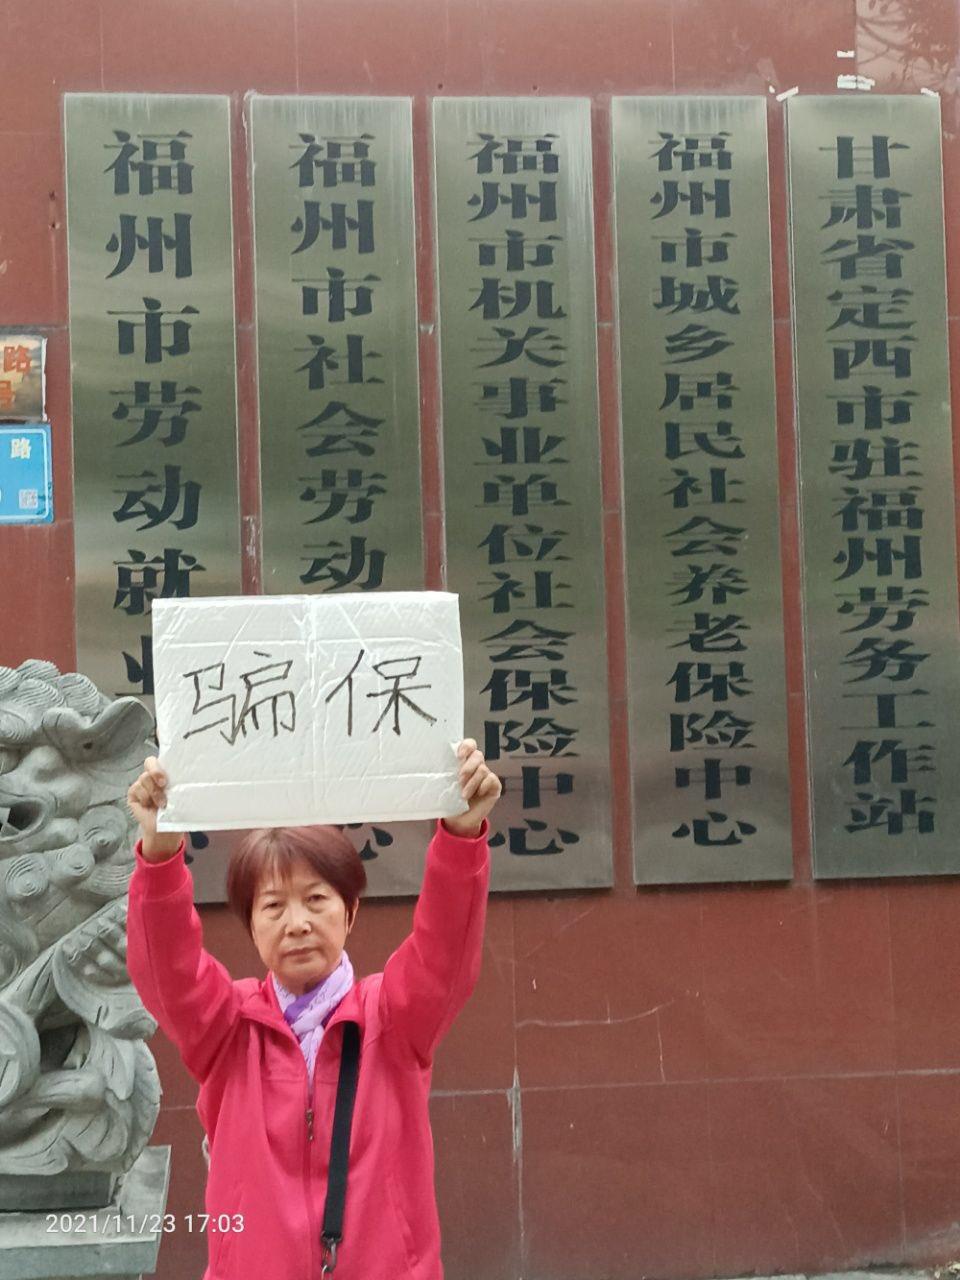 福州市劳动就业
福州市社会劳动
心
福州市机关事业单位社会保险中心
福州市城乡居民社会养老保险中心
甘肃省定西市驻福州劳务工作站
路
号
路
骗保
2021/11/23 17:03